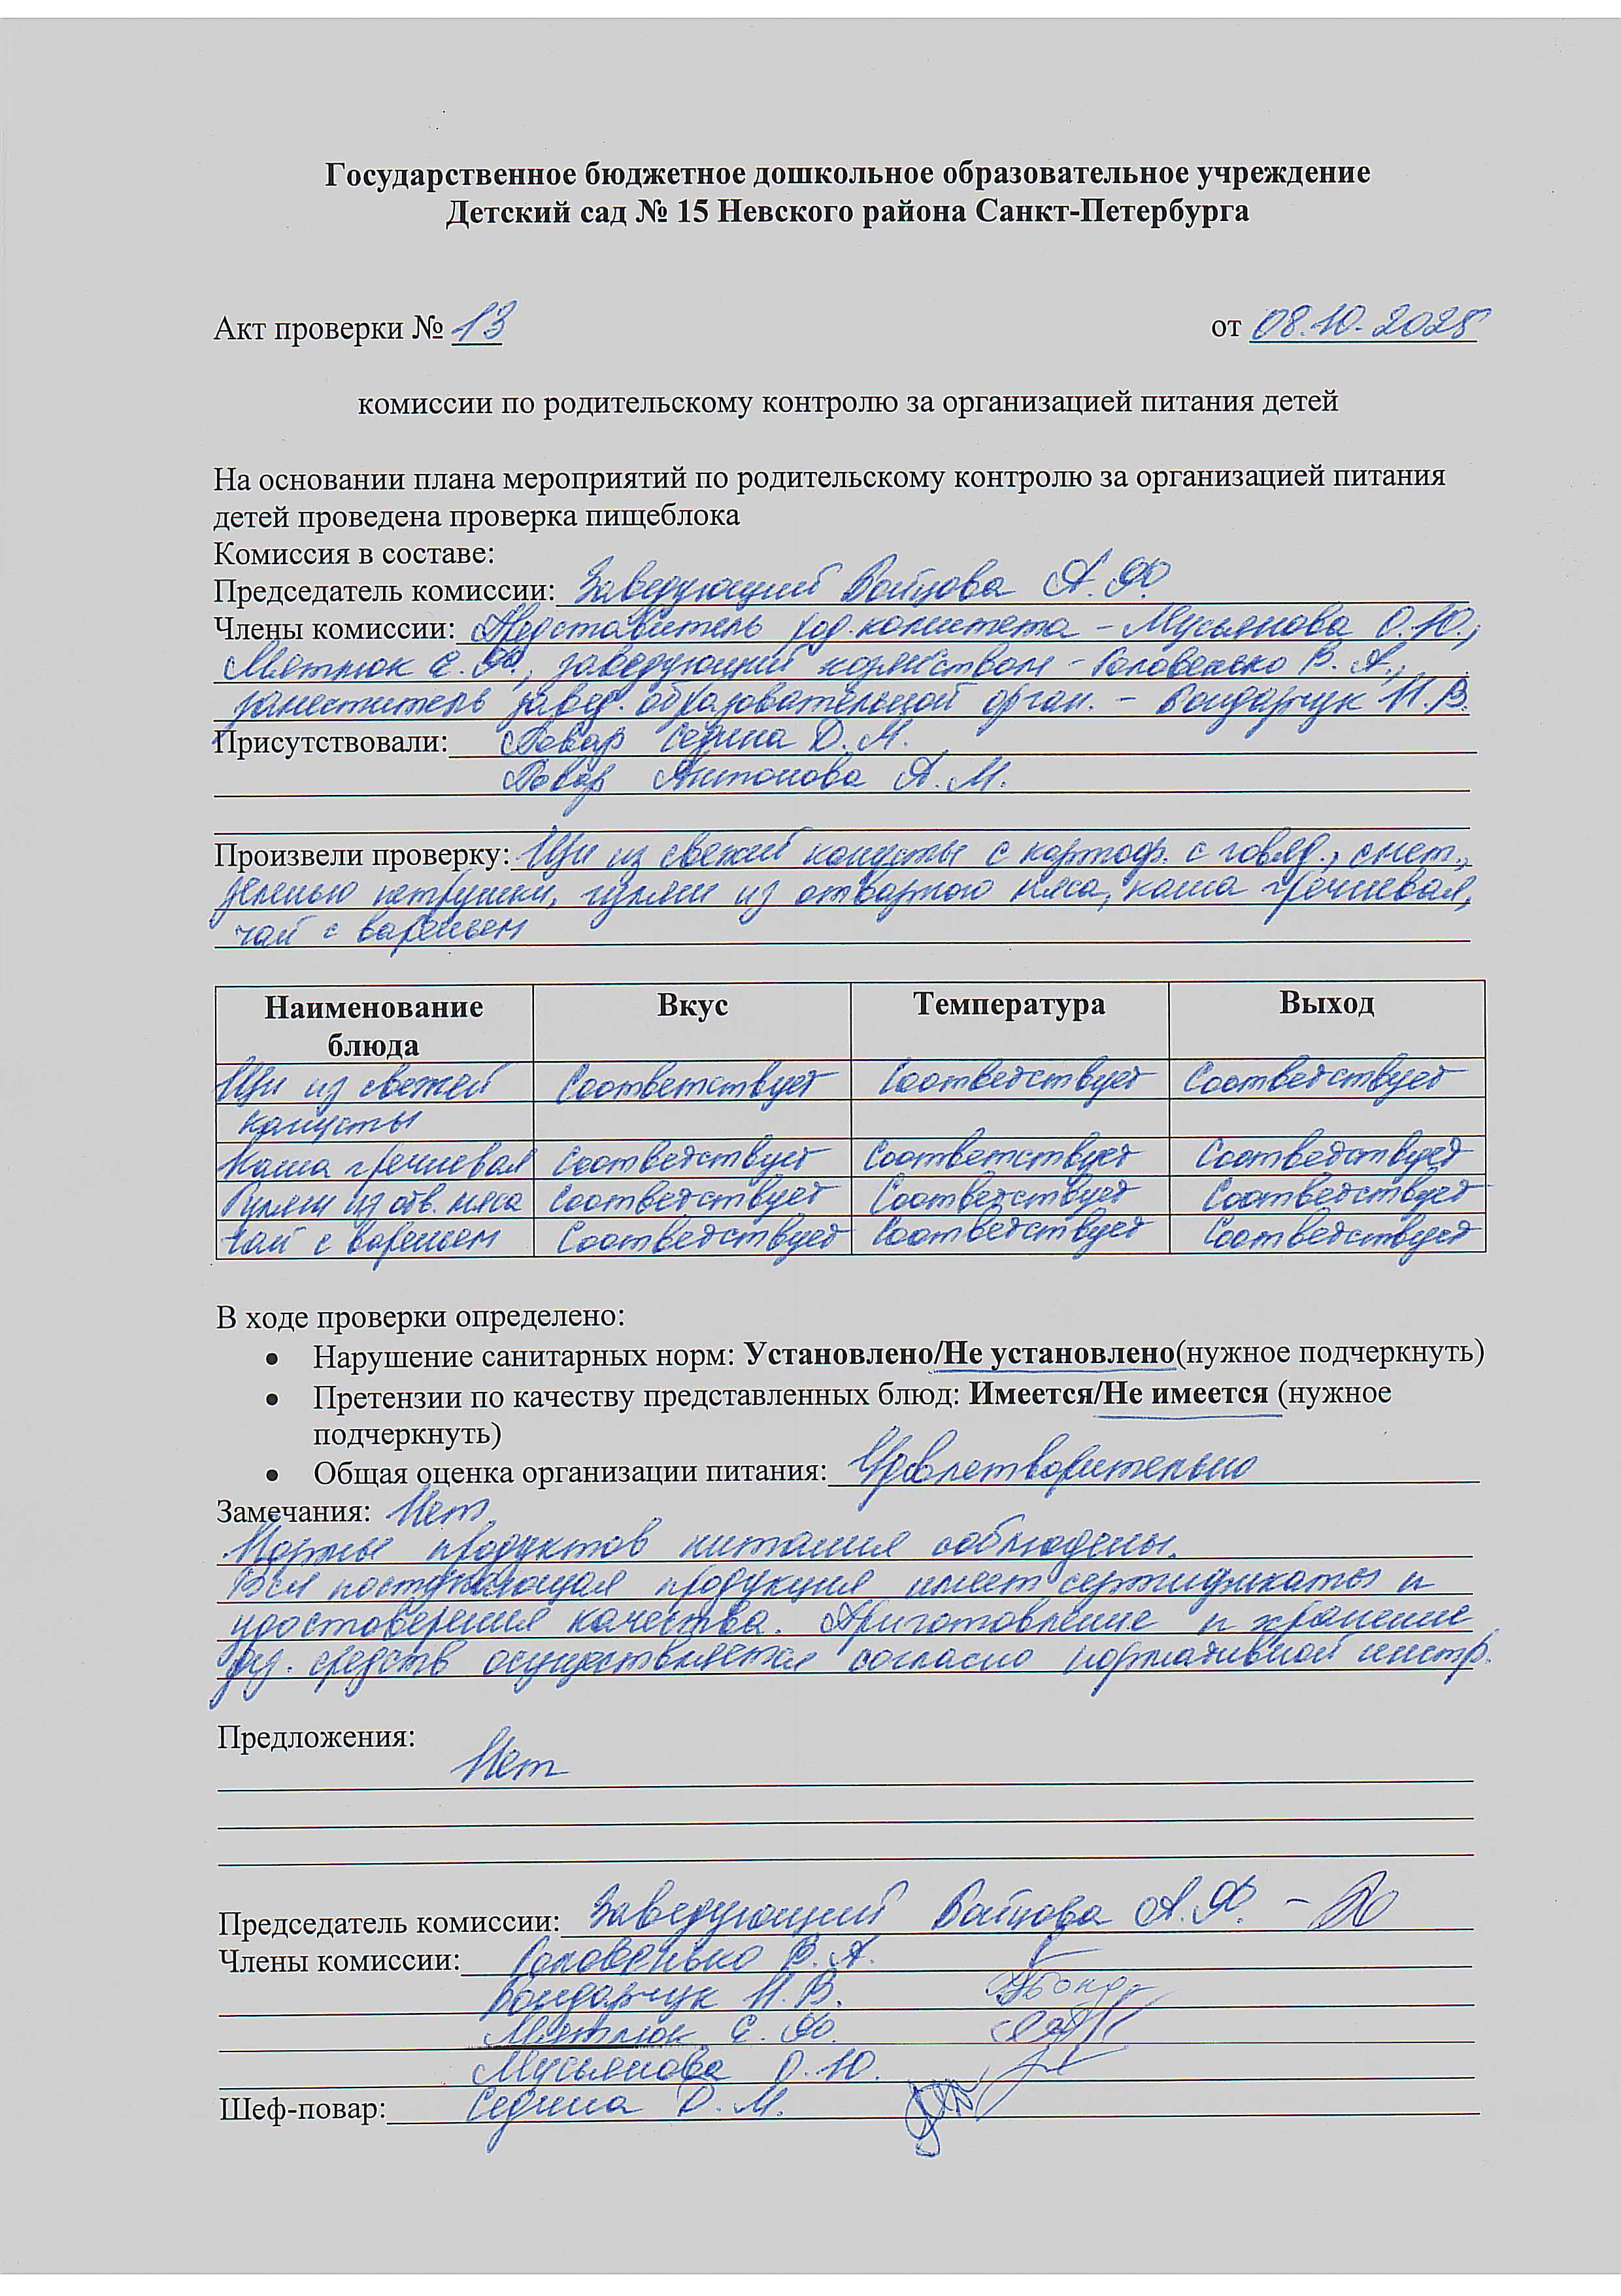 Государственное бюджетное дошкольное образовательное учреждение
Детский сад № 15 Невского района Санкт-Петербурга
Акт проверки № 13 от 08.10.2025
комиссии по родительскому контролю за организацией питания детей
На основании плана мероприятий по родительскому контролю за организацией питания
детей проведена проверка пищеблока
Комиссия в составе:
Председатель комиссии: Заведующий Бойцова А.Ф.
Члены комиссии: Представитель род. комитета - Мусьянова О.Ю.,
Мятлюк Е.Ф., заведующий хозяйством - Головенько В.А.,
заместитель завед. образовательной орган. - Бондарчук Н.В.
Присутствовали: Повар Седина Д.М.
Повар Антонова А.М.
Произвели проверку: Щи из свежей капусты с картоф. с говяд., смет.,
зеленью петрушки, гуляш из отварного мяса, каша гречневая,
чай с вареньем
Наименование блюда Вкус Температура Выход
Щи из свежей Соответствует Соответствует Соответствует
капусты
Каша гречневая Соответствует Соответствует Соответствует
Гуляш из отв. мяса Соответствует Соответствует Соответствует
Чай с вареньем Соответствует Соответствует Соответствует
В ходе проверки определено:
• Нарушение санитарных норм: Установлено/Не установлено(нужное подчеркнуть)
• Претензии по качеству представленных блюд: Имеется/Не имеется (нужное
подчеркнуть)
• Общая оценка организации питания: Удовлетворительно
Замечания: Нет
Нормы продуктов питания соблюдены.
Вся поступающая продукция имеет сертификаты и
удостоверения качества. Приготовление и хранение
дез. средств осуществляется согласно нормативной инстр.
Предложения:
Нет
Председатель комиссии: Заведующий Бойцова А.Ф. -
Члены комиссии: Головенько В.А.
Бондарчук Н.В.
Мятлюк Е.Ф.
Мусьянова О.Ю.
Шеф-повар: Седина Д.М.